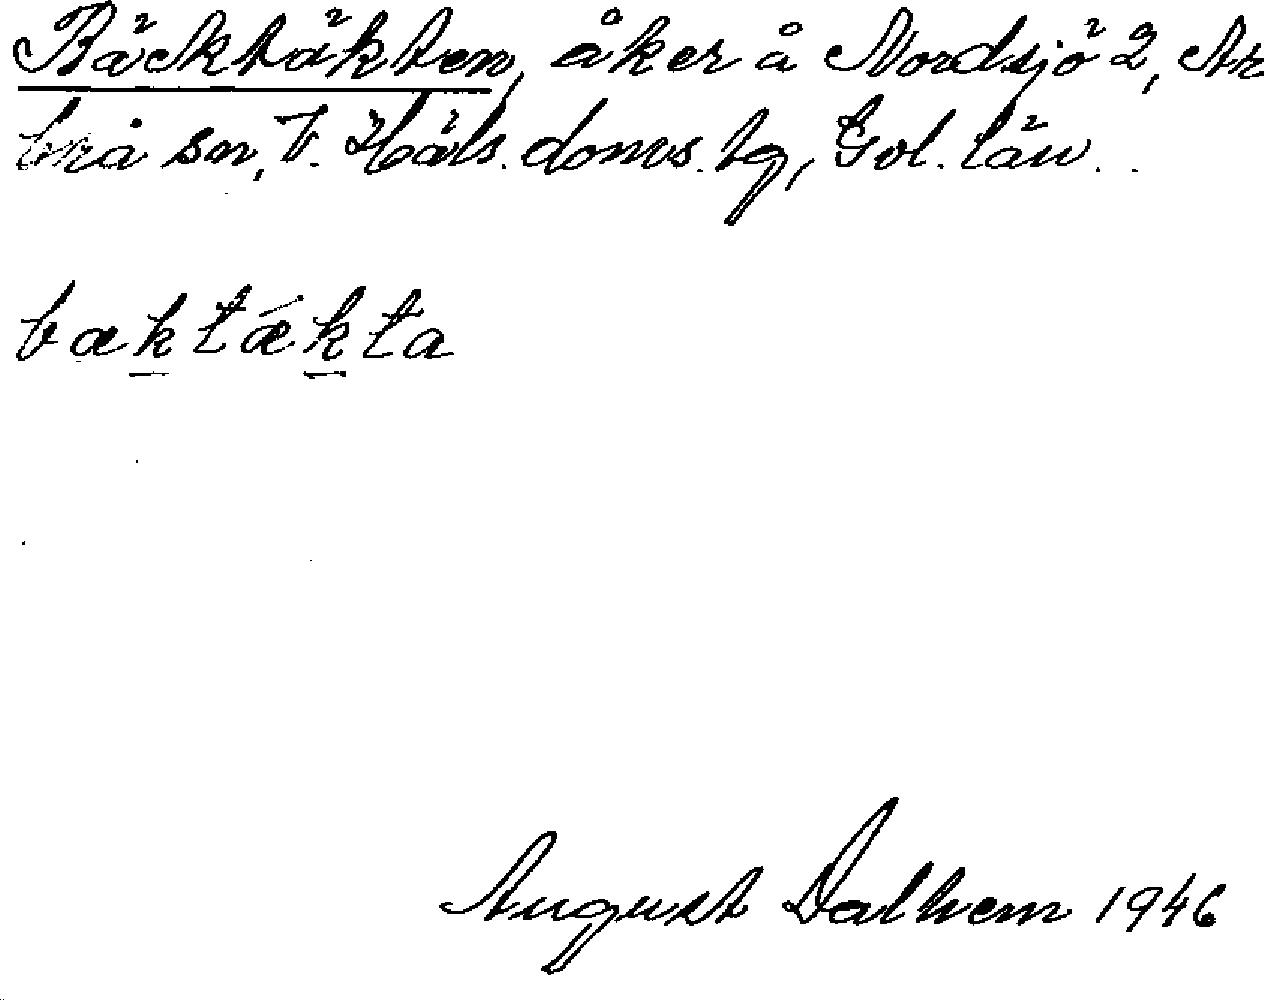 Bäcktäkten, åker å Nordsjö 2, Ar
brå sn, V. Häls. doms. tg, Gvl. län.
bæktǽkta
August Dalhem 1946